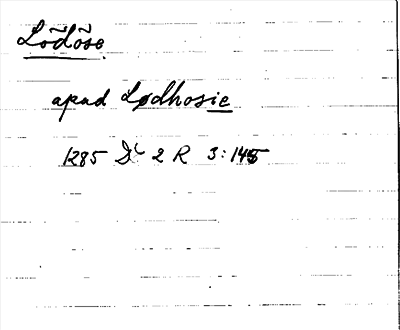 Lödöse
apud Lødhosie
1285 DL 2 R 3:145